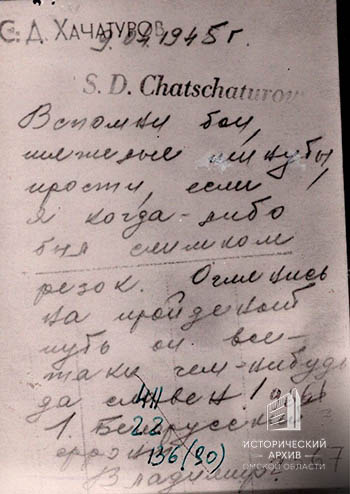 С. Д. ХАЧАТУРОВ
9.04.1945 г.
S. D. Chatschaturow
Вспомни бои,
тяжелые минуты
прости, если
я когда-либо
был слишком
резок. Оглянись
на пройденный
путь он все-
таки чем-нибудь
да славен!
44
1. Белорусский
22
фронт
136 (90)
Владимир
67
ИСТОРИЧЕСКИЙ
АРХИВ
ОМСКОЙ ОБЛАСТИ